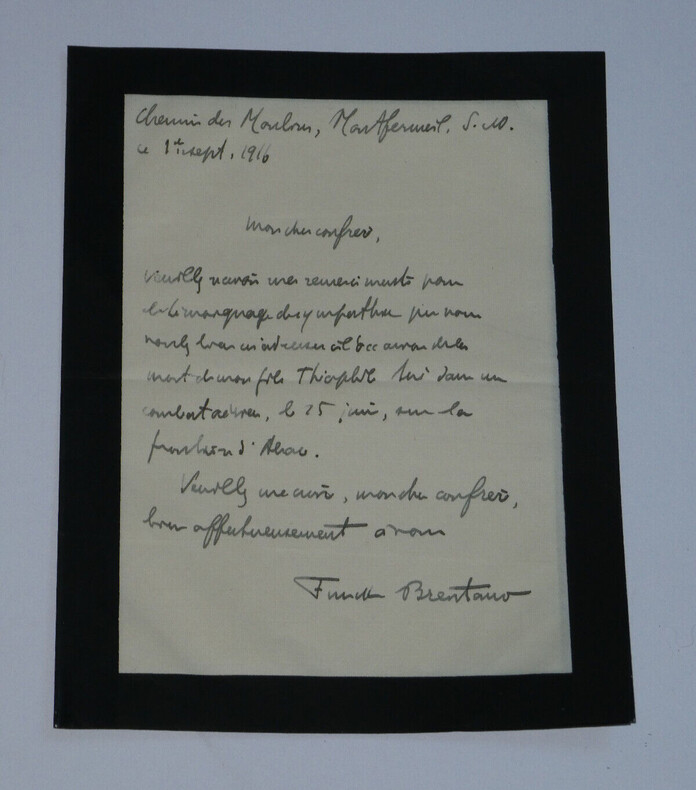 Chemin des Moulins, Montfermeil. S.-O.
ce 1er sept. 1916
Mon cher confrère,
Veuillez recevoir mes remerciements pour
le témoignage de sympathie que vous
voulez bien m'adresser à l'occasion de la
mort de mon fils Théophile tué dans un
combat aérien, le 25 juin, sur la
frontière d'Alsace.
Veuillez me croire, mon cher confrère,
bien affectueusement à vous
Funck Brentano